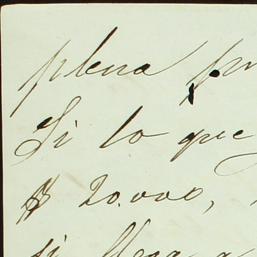 plena
Si lo que
$ 20.000,
si llega a